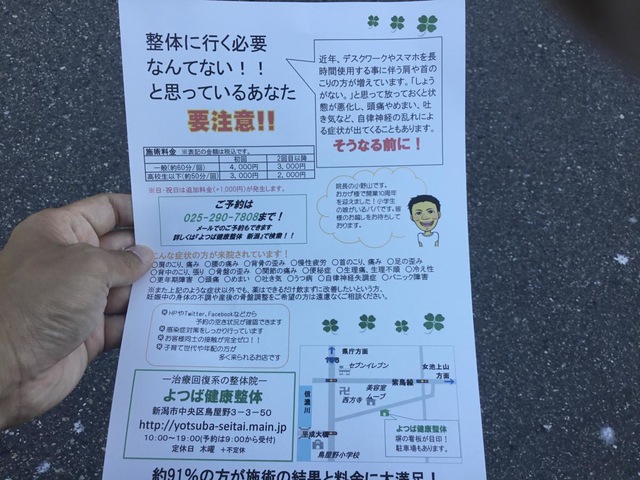 整体に行く必要
なんてない！！
と思っているあなた
要注意!!
近年、デスクワークやスマホを長
時間使用する事に伴う肩や首の
こりの方が増えています。「しょう
がない。」と思って放っておくと
状態が悪化し、頭痛やめまい、吐
き気など、自律神経の乱れによ
る症状が出てくることもあります。
そうなる前に！
施術料金 ※表記の金額は税込です。
初回 2回目以降
一般(約60分/回) 4,000円 3,000円
高校生以下(約50分/回) 3,000円 2,000円
※日・祝日は追加料金(+1,000円)が発生します。
ご予約は
025-290-7808まで！
メールでのご予約もできます
詳しくは『よつば健康整体 新潟』で検索！！
院長の小野山です。
おかげ様で開業10周年
を迎えました！小学生
の娘がいるパパです。皆
様のお越しをお待ちして
おります。
こんな症状の方が来院されています！
○肩のこり、痛み ○腰の痛み ○背骨の歪み ○慢性疲労 ○首のこり、痛み ○足の歪み
○背中のこり、張り ○骨盤の歪み ○関節の痛み ○便秘症 ○生理痛、生理不順 ○冷え性
○更年期障害 ○頭痛 ○めまい ○吐き気 ○うつ病 ○自律神経失調症 ○パニック障害
※また上記のような症状以外でも、薬はできるだけ飲まずに改善したいという方、
妊娠中の身体の不調や産後の骨盤調整をご希望の方は遠慮なくご相談ください。
HPやTwitter、Facebookなどから
予約の空き状況が確認できます
感染症対策をしっかり行っています
お客様同士の接触が完全ゼロ！！
子育て世代や年配の方が
多く来られるお店です
―治療回復系の整体院―
よつば健康整体
新潟市中央区鳥屋野3-3-50
http://yotsuba-seitai.main.jp
10:00～19:00(予約は9:00から受付)
定休日 木曜 +不定休
県庁方面
セブンイレブン
女池上山
方面
紫鳥線
信濃川
美容室
ムーブ
卍
西方寺
平成大橋
鳥屋野小学校
よつば健康整体
塀の看板が目印！
駐車場もあります。
約91%の方が施術の結果と料金に大満足！